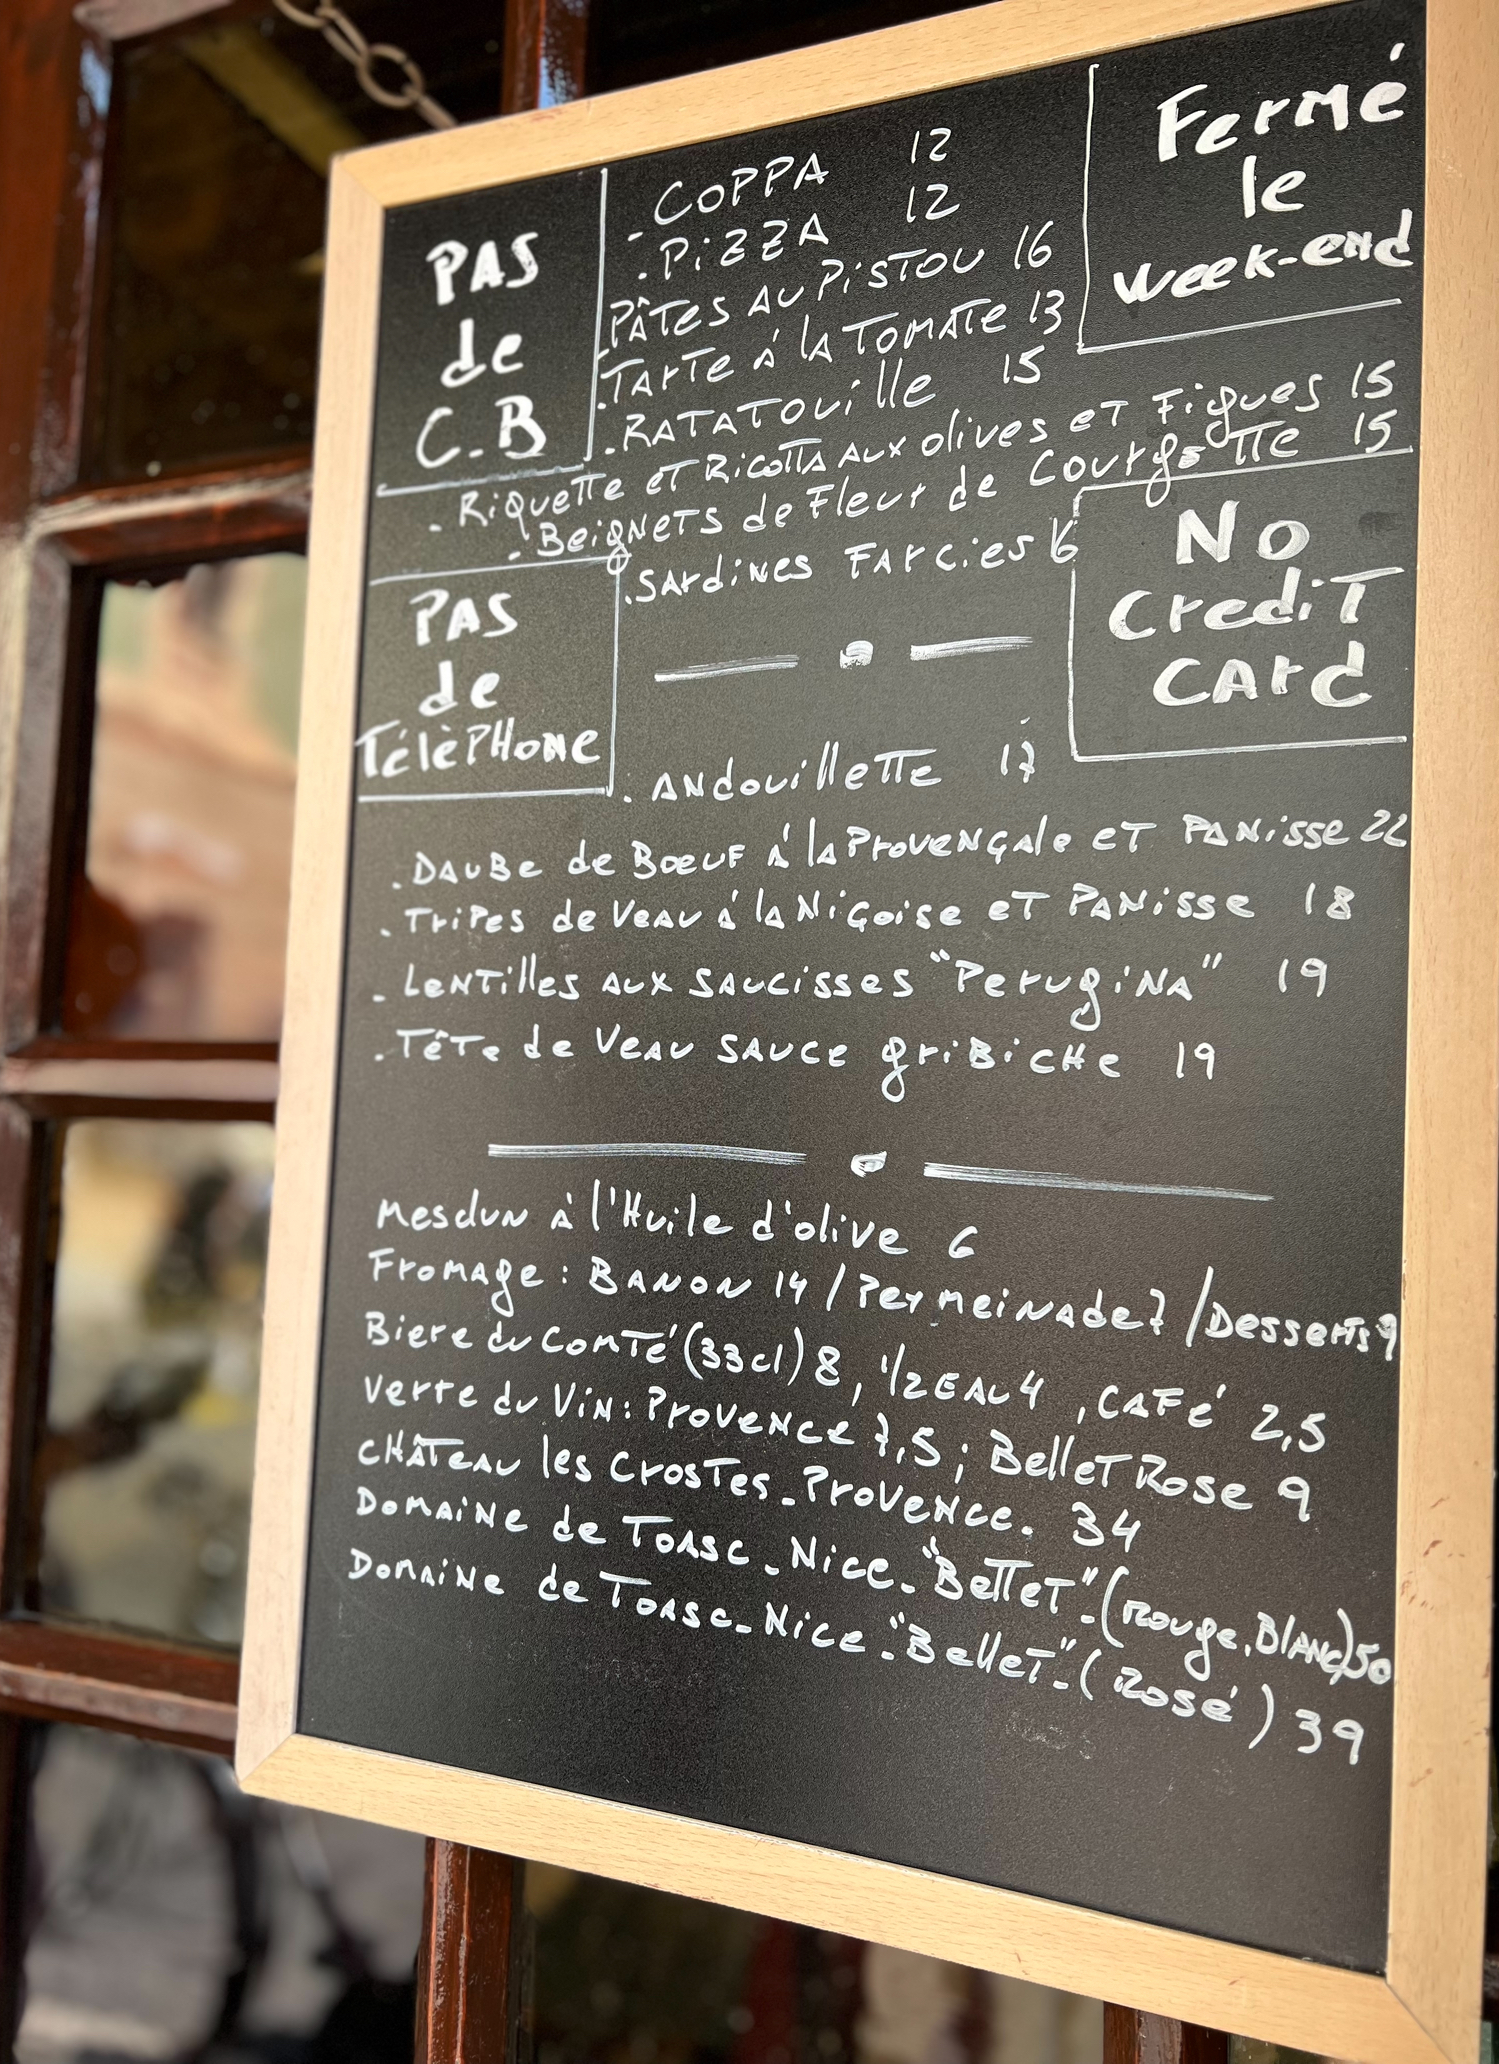 PAS
de
C.B
- COPPA 12
. PiZZA 12
. PÂTES AU PISTOU 16
. TARTE á lA TOMATE 13
. RATATOUille 15
Fermé
le
week-end
. RiQueTTe eT RicoTTA AUX olives eT Figues 15
. BeiGNeTS de Fleur de CourgeTTe 15
. SArdiNes FArcies 16
PAS
de
TélèPHoNe
No
CrediT
CArd
. ANdouilleTTe 17
. DAUBe de BœuF á lA ProveNçAle eT PANisse 22
. TriPes de VeAu á lA Niçoise eT PANisse 18
- LeNTilles AUX SAUCisses "PerugiNA" 19
. TêTe de VeAu SAUCe griBiCHe 19
Mesclun à l'Huile d'olive 6
FromAge : BANON 14 / PermeiNAde 7 / DesserTs 9
Biere du ComTé (33cl) 8, 1/2 EAU 4, CAFé 2,5
Verre du ViN : ProveNce 7,5 ; BelleT Rose 9
CHÂTeAu les CrosTes - ProveNce. 34
DomAiNe de ToAsc - Nice - "BelleT" - (rouge, BlANc) 50
DomAiNe de ToAsc - Nice - "BelleT" - (rosé) 39